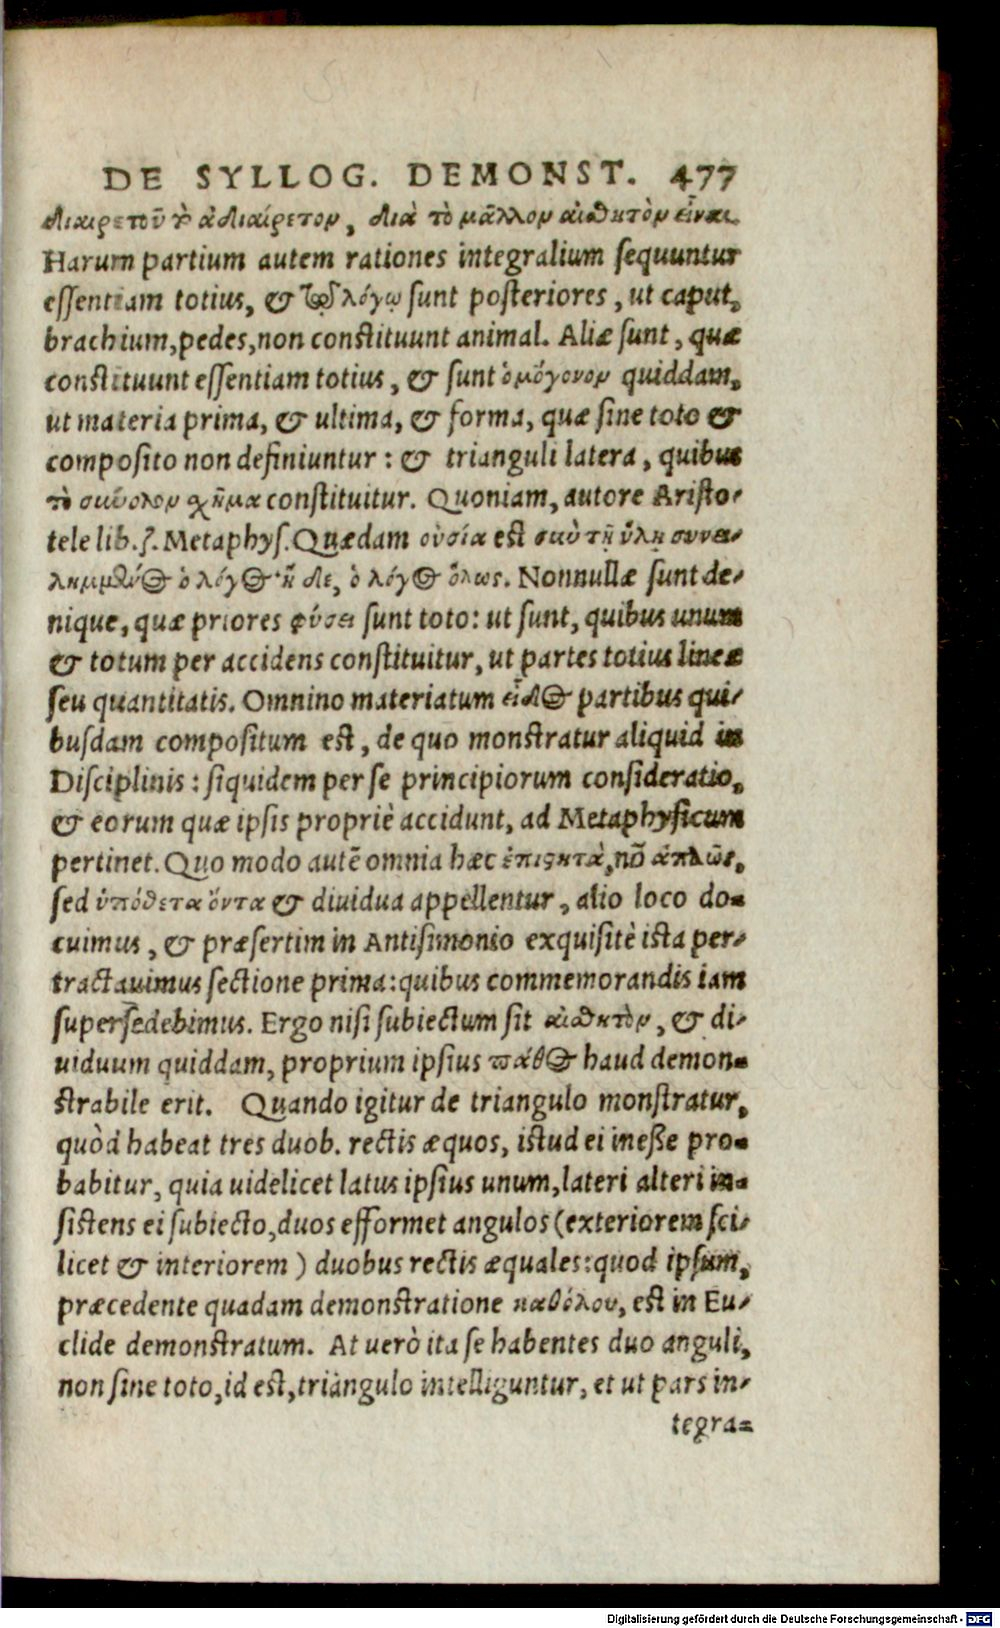 DE SYLLOG. DEMONST. 477
διαιρετοῦ ἢ ἀδιαίρετον, διὰ τὸ μᾶλλον αἰσθητὸν εἶναι.
Harum partium autem rationes integralium sequuntur
essentiam totius, & τῷ λόγῳ sunt posteriores, ut caput,
brachium, pedes, non constituunt animal. Aliæ sunt, quæ
constituunt essentiam totius, & sunt ὁμόγονον quiddam,
ut materia prima, & ultima, & forma, quæ sine toto &
composito non definiuntur: & trianguli latera, quibus
τὸ σύνολον χῆμα constituitur. Quoniam, autore Aristo-
tele lib.ζ. Metaphys. Quædam οὐσία est σὺν τῇ ὕλῃ συνει-
λημμένος ὁ λόγος ἡ δε, ὁ λόγος ὅλως. Nonnullæ sunt de-
nique, quæ priores φύσει sunt toto: ut sunt, quibus unum
& totum per accidens constituitur, ut partes totius lineæ
seu quantitatis. Omnino materiatum εἶδος partibus qui-
busdam compositum est, de quo monstratur aliquid in
Disciplinis: siquidem per se principiorum consideratio,
& eorum quæ ipsis propriè accidunt, ad Metaphysicum
pertinet. Quo modo autē omnia hæc ἐπιστητὰ, nō ἁπλῶς,
sed ὑπόθετα ὄντα & diuidua appellentur, alio loco do-
cuimus, & præsertim in Antisimonio exquisitè ista per-
tractauimus sectione prima: quibus commemorandis iam
supersedebimus. Ergo nisi subiectum sit αἰσθητὸν, & di-
uiduum quiddam, proprium ipsius πάθος haud demon-
strabile erit. Quando igitur de triangulo monstratur,
quòd habeat tres duob. rectis æquos, istud ei inesse pro-
babitur, quia uidelicet latus ipsius unum, lateri alteri in-
sistens ei subiecto, duos efformet angulos (exteriorem sci-
licet & interiorem) duobus rectis æquales: quod ipsum,
præcedente quadam demonstratione καθόλου, est in Eu-
clide demonstratum. At uerò ita se habentes duo anguli,
non sine toto, id est, triangulo intelliguntur, et ut pars in-
tegra-
Digitalisierung gefördert durch die Deutsche Forschungsgemeinschaft - DFG